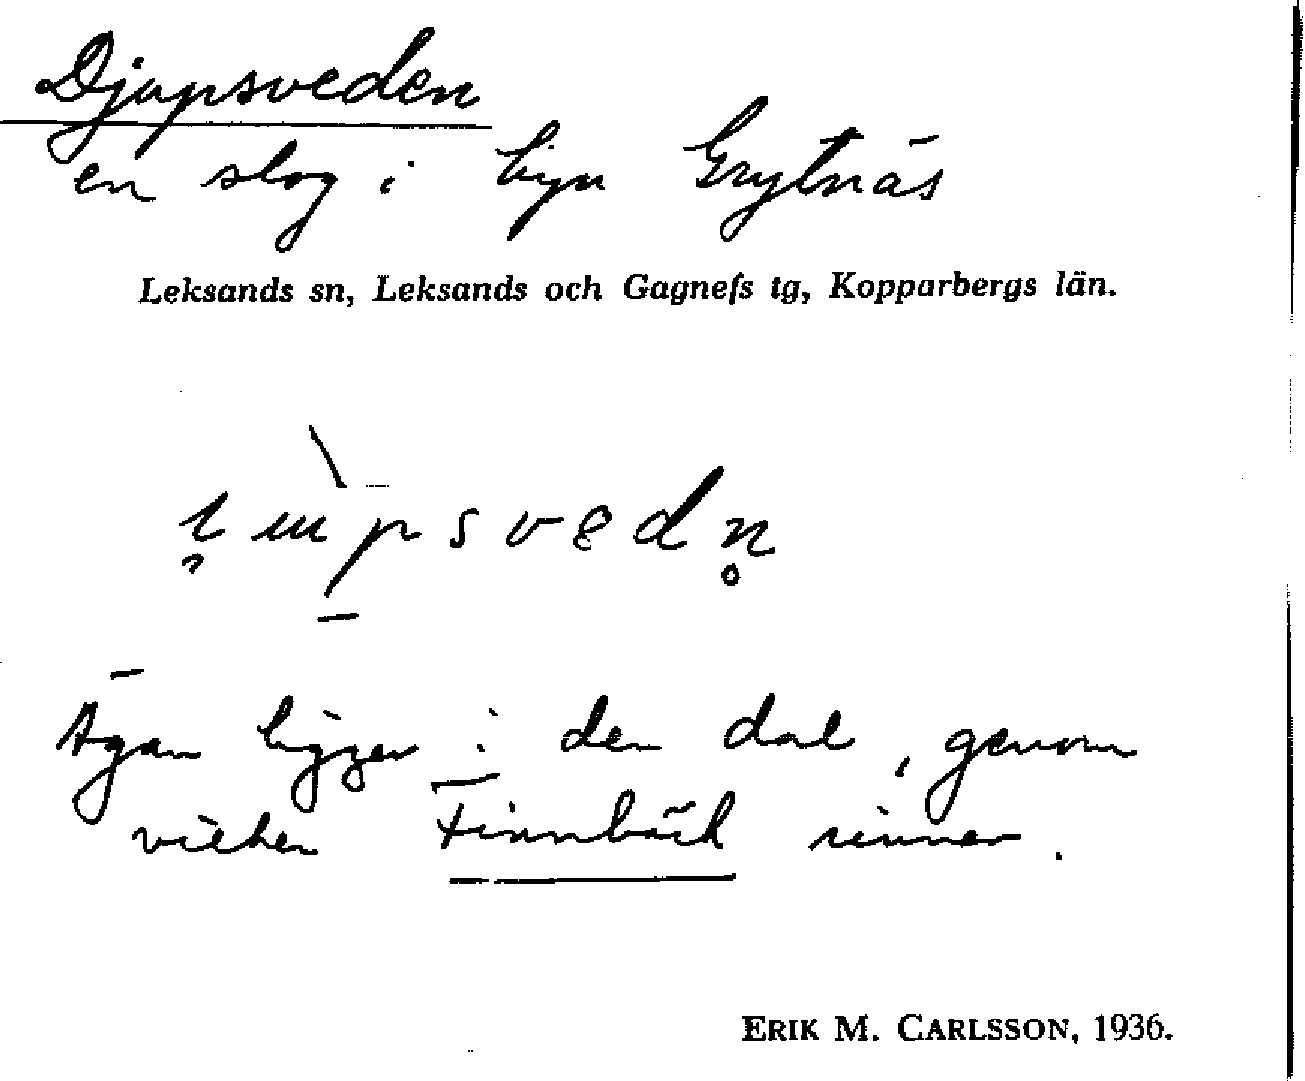 Djupsveden
en slog i byn Grytnäs
Leksands sn, Leksands och Gagnefs tg, Kopparbergs län.
Ägan ligger i den dal, genom
vilken Finnbäck rinner.
ERIK M. CARLSSON, 1936.